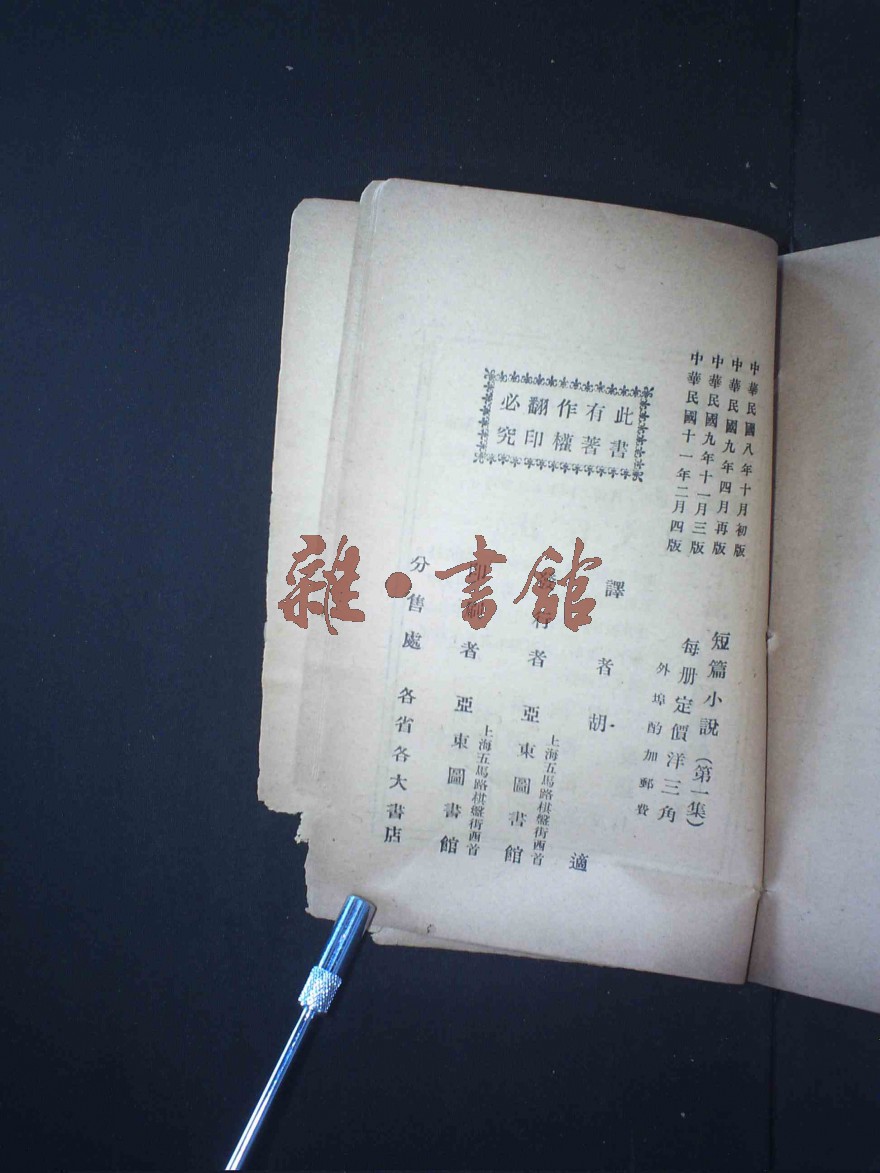 中華民國八年十月初版
中華民國九年四月再版
中華民國九年十一月三版
中華民國十一年二月四版
此書
有著
作權
翻印
必究
短篇小說(第一集)
每册定價洋三角
外埠酌加郵費
譯者胡適
發行者亞東圖書館
上海五馬路棋盤街西首
印刷者亞東圖書館
上海五馬路棋盤街西首
分售處各省各大書店
雜·書館